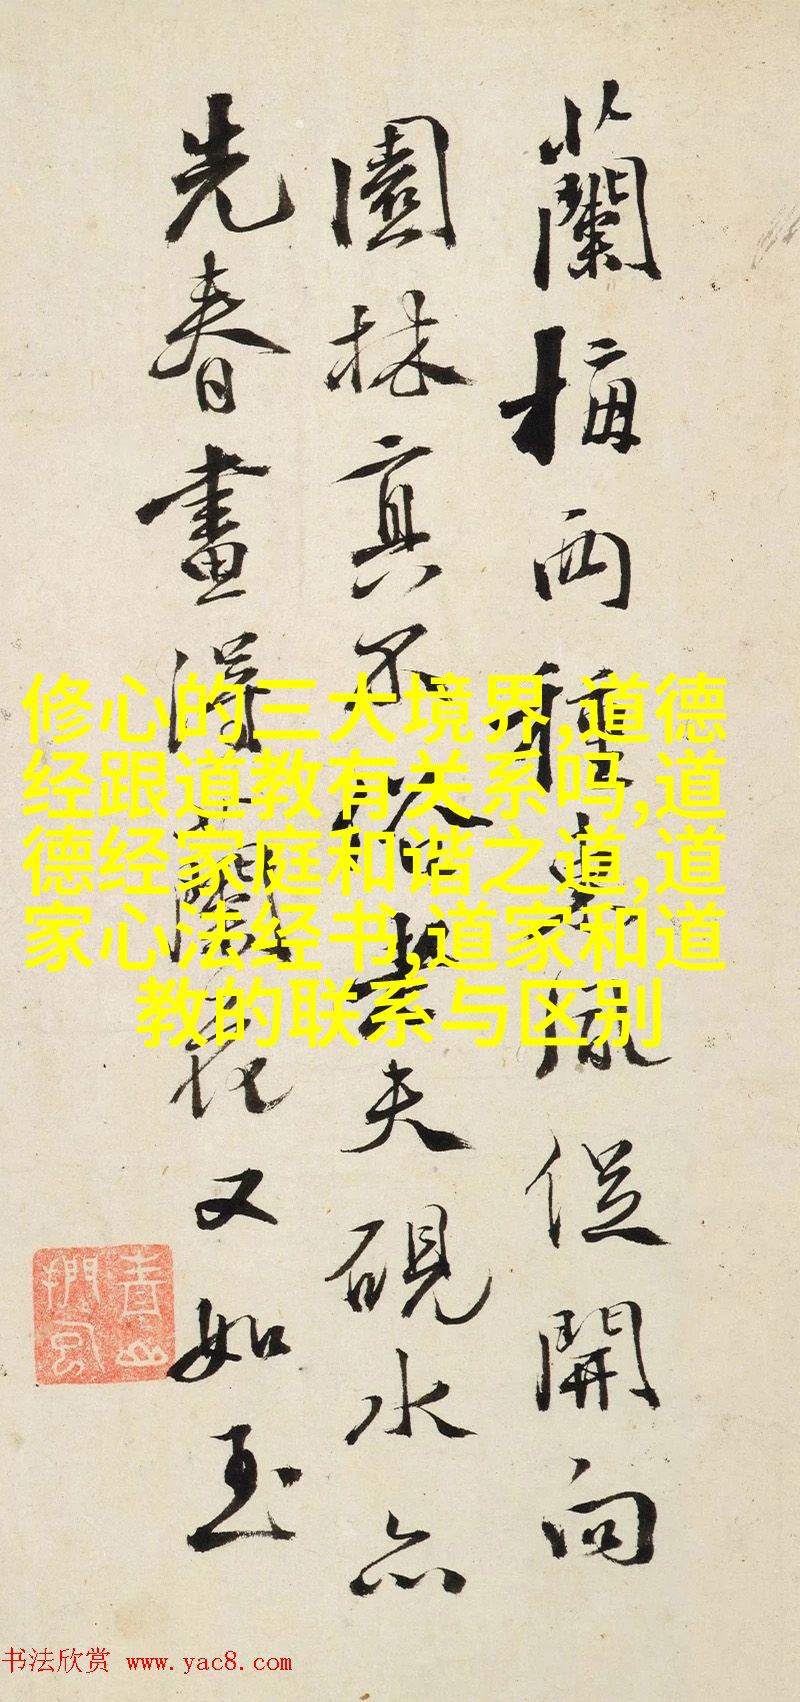 蘭梅兩種東風促開向
園林真不俗老夫硯水亦
先春畫得蘭花又如玉
修心的三大境界,道德
经跟道教有关系吗,道
德经家庭和谐之道,道
家心法经书,道家和道
教的联系与区别
书法欣赏 www.yac8.com